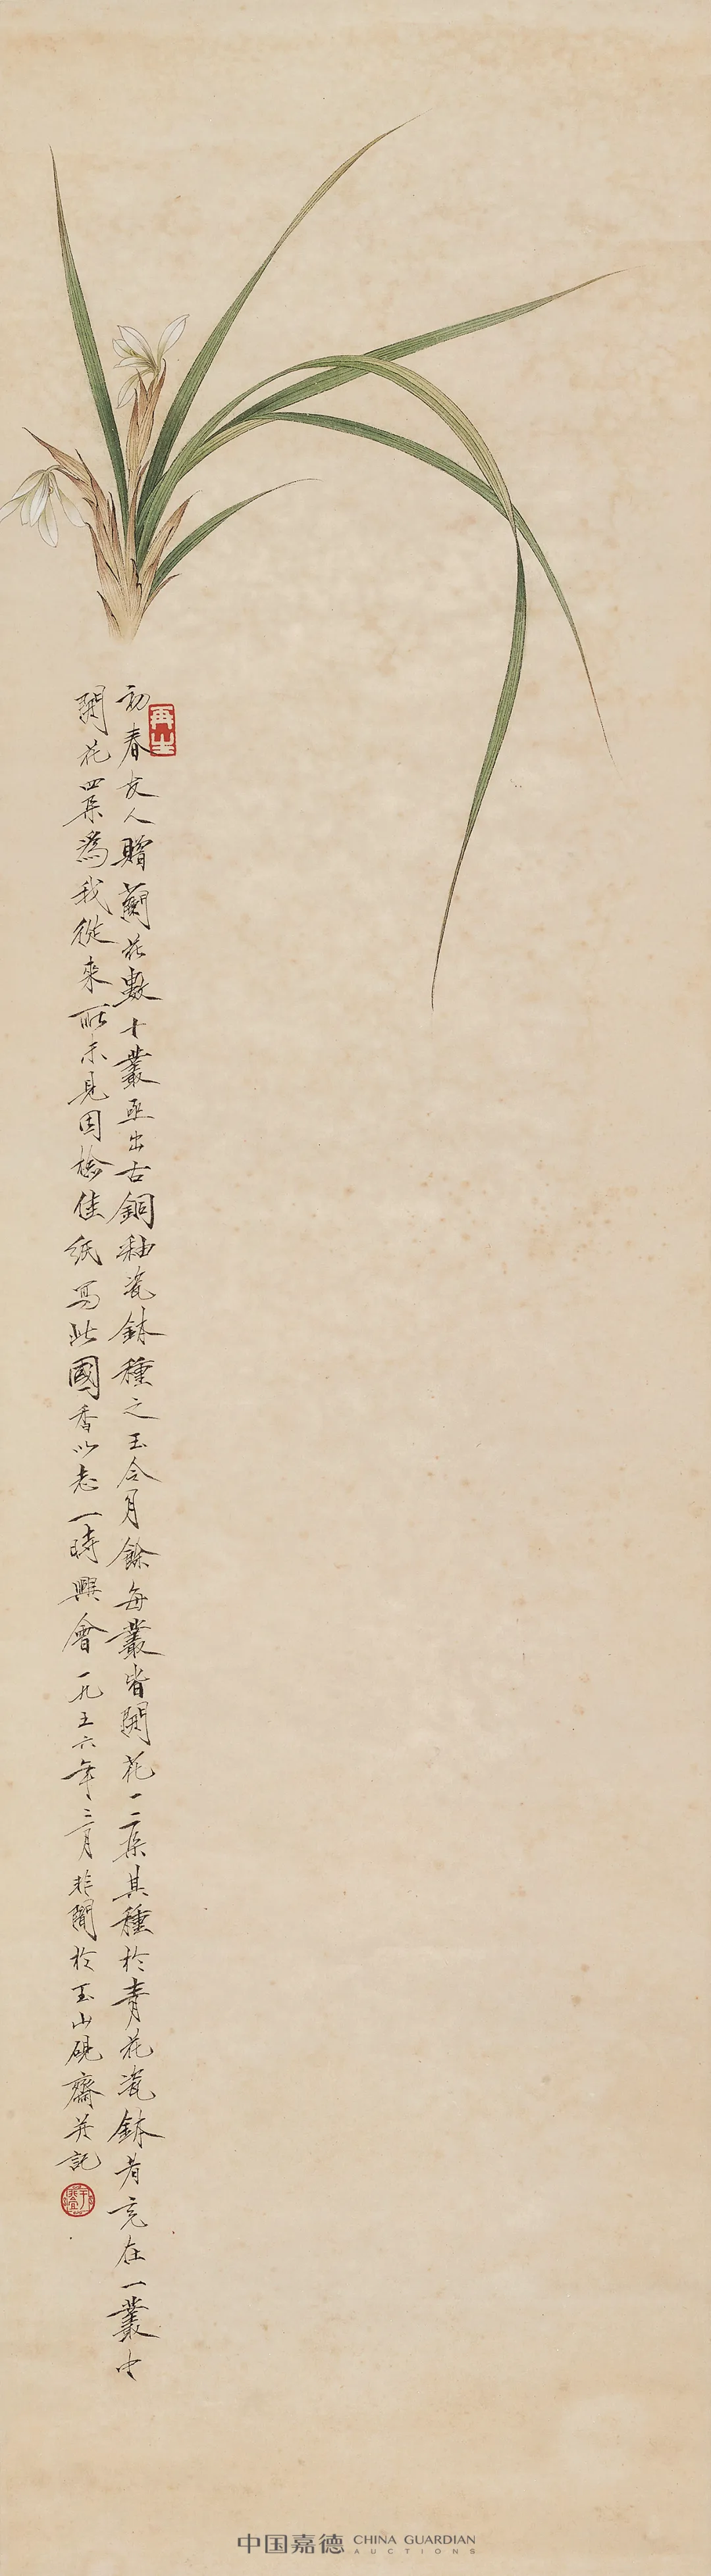 初春友人贈蘭花數十叢亟出古銅釉瓷鉢種之至今月餘每叢皆開花一二朵其種於青花瓷鉢者竟在一叢中
開花四朵為我從來所未見因檢佳紙寫此國香以志一時興會一九五六年三月非闇於玉山硯齋并記
再生
中国嘉德 CHINA GUARDIAN
AUCTIONS